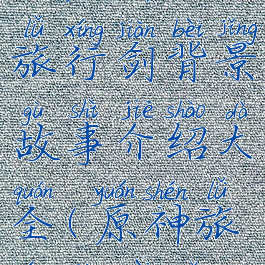 lǚ xíng jiàn bèi jǐng
旅行剑背景
gù shì jiè shào dà
故事介绍大
quán yuán shén lǚ
全(原神旅